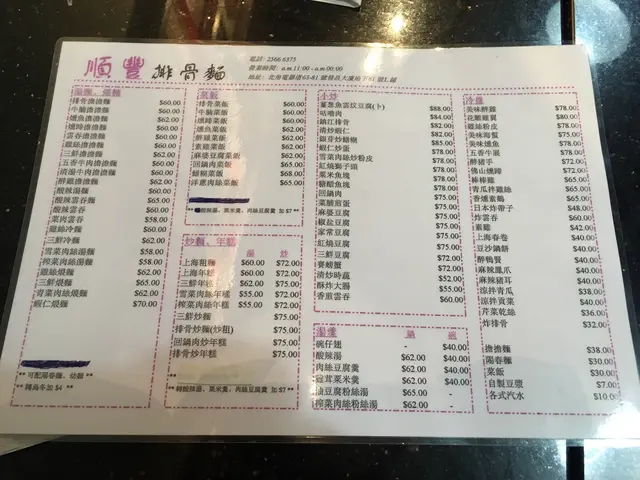 順豐 排骨麵
電話: 2566 6375
營業時間: a.m.11:00 - a.m.00:00
地址: 北角電器道63-81 號發昌大廈地下81 號L 舖
湯麵、煨麵
排骨擔擔麵 $60.00
牛腩擔擔麵 $60.00
燻魚擔擔麵 $62.00
燻蹄擔擔麵 $60.00
雲吞擔擔麵 $60.00
雞絲擔擔麵 $60.00
三鮮擔擔麵 $62.00
五香牛肉擔擔麵 $60.00
清燉牛肉擔擔麵 $60.00
醉雞擔擔麵 $62.00
酸辣湯麵 $60.00
酸辣雲吞麵 $65.00
酸辣雲吞 $60.00
菜肉雲吞 $58.00
雞絲冷麵 $60.00
三鮮冷麵 $62.00
雪菜肉絲湯麵 $58.00
榨菜肉絲湯麵 $58.00
雞絲煨麵 $62.00
三鮮煨麵 $65.00
青菜肉絲煨麵 $62.00
蝦仁煨麵 $70.00
** 可配陽春麵、幼麵 **
** 轉烏冬加 $4 **
菜飯
排骨菜飯 $60.00
牛腩菜飯 $60.00
燻蹄菜飯 $60.00
燻魚菜飯 $62.00
醉雞菜飯 $62.00
素雞菜飯 $62.00
麻婆豆腐菜飯 $60.00
回鍋肉菜飯 $65.00
鱔糊菜飯 $68.00
洋蔥肉絲菜飯 $65.00
酸辣湯、粟米羹、肉絲豆腐羹 加 $7 **
炒麵、年糕 湯 炒
上海粗麵 $60.00 $72.00
上海年糕 $60.00 $72.00
三鮮年糕 $62.00 $75.00
雪菜肉絲年糕 $55.00 $72.00
榨菜肉絲年糕 $55.00 $72.00
三鮮炒麵 $75.00
排骨炒麵(炒粗) $75.00
回鍋肉炒年糕 $75.00
排骨炒年糕 $75.00
** 轉酸辣湯、粟米羹、肉絲豆腐羹 加 $7 **
小炒
薑蔥魚雲炆豆腐(卜) $88.00
咕嚕肉 $84.00
鎮江排骨 $82.00
清炒蝦仁 $82.00
韮芽炒鱔糊 $85.00
蝦仁炒蛋 $78.00
雪菜肉絲炒粉皮 $78.00
紅燒獅子頭 $78.00
粟米魚塊 $78.00
糖醋魚塊 $78.00
回鍋肉 $78.00
菜脯煎蛋 $72.00
麻婆豆腐 $72.00
椒鹽豆腐 $72.00
家常豆腐 $72.00
紅燒豆腐 $72.00
三鮮豆腐 $72.00
賽螃蟹 $72.00
清炒時蔬 $52.00
酥炸大腸 $55.00
香煎雲吞 $60.00
湯羹 鍋 碗
碗仔翅 - $40.00
酸辣湯 $62.00 $40.00
肉絲豆腐羹 $62.00 $40.00
冠茸粟米羹 $62.00 $40.00
油豆腐粉絲湯 $65.00 -
榨菜肉絲粉絲湯 $62.00 -
冷盤
美味醉雞 $78.00
花雕雞翼 $80.00
雞絲粉皮 $78.00
美味海蜇 $75.00
美味燻魚 $78.00
五香牛𦟌 $78.00
醉豬手 $72.00
佛山燻蹄 $72.00
棒棒雞 $65.00
青瓜拌雞絲 $65.00
香燻素鵝 $65.00
日本炸帶子 $48.00
炸雲吞 $60.00
素雞 $42.00
上海春卷 $40.00
豆沙鍋餅 $40.00
醉鴨腎 $72.00
麻辣鳳爪 $40.00
麻辣豬耳 $40.00
涼拌青瓜 $38.00
涼拌貢菜 $40.00
芹菜乾絲 $36.00
炸排骨 $32.00
擔擔麵 $38.00
陽春麵 $30.00
菜飯 $30.00
自製豆漿 $7.00
各式汽水 $10.00